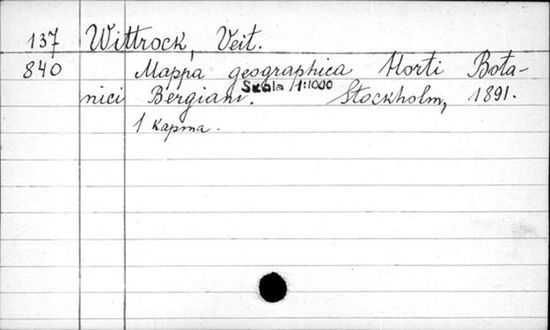 137 Wittrock, Veit.
840 Mappa geographica Horti Bota-
nici Bergiani. Skala 1:1000 Stockholm, 1891.
1 карта.